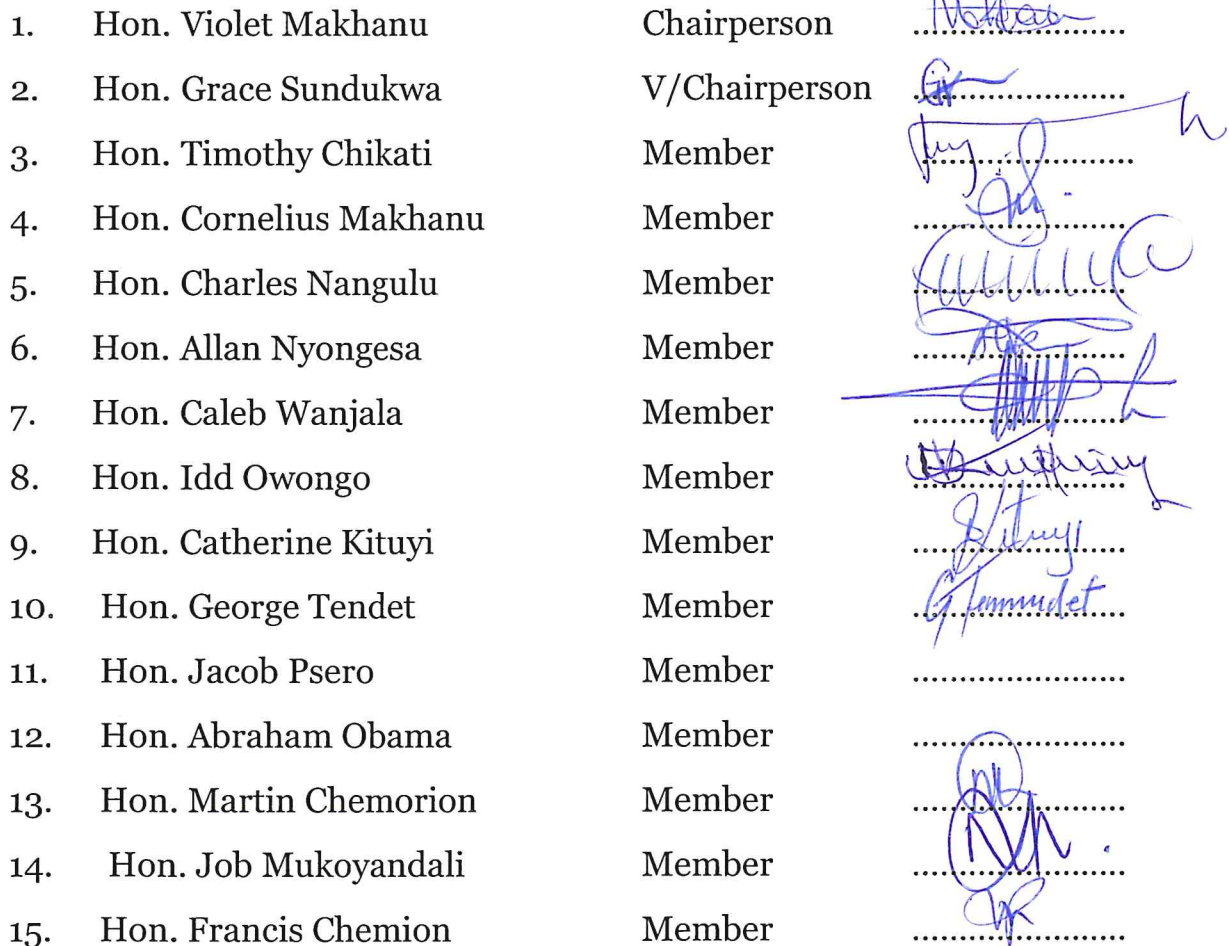 1. Hon. Violet Makhanu Chairperson ........................
2. Hon. Grace Sundukwa V/Chairperson ........................
3. Hon. Timothy Chikati Member ........................
4. Hon. Cornelius Makhanu Member ........................
5. Hon. Charles Nangulu Member ........................
6. Hon. Allan Nyongesa Member ........................
7. Hon. Caleb Wanjala Member ........................
8. Hon. Idd Owongo Member ........................
9. Hon. Catherine Kituyi Member ........................ Kituyi
10. Hon. George Tendet Member ........................
11. Hon. Jacob Psero Member ........................
12. Hon. Abraham Obama Member ........................
13. Hon. Martin Chemorion Member ........................
14. Hon. Job Mukoyandali Member ........................
15. Hon. Francis Chemion Member ........................